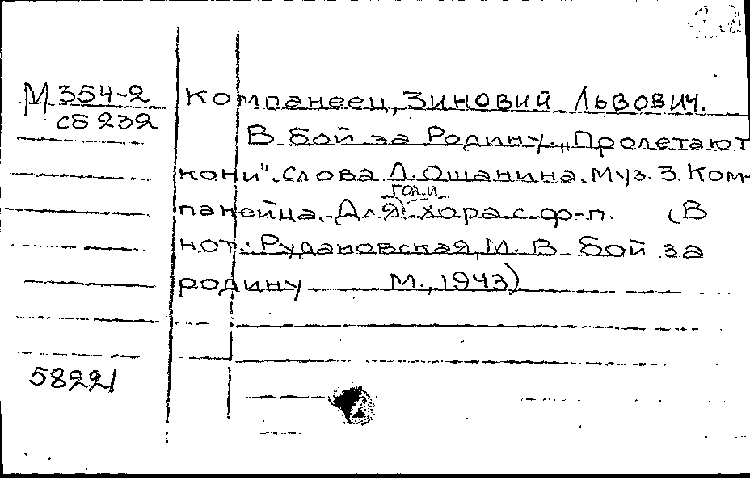 М 354-2
сб 232
Компанеец, Зиновий Львович.
В бой за Родину. „Пролетают
кони". Слова Л. Ошанина. Муз. З. Ком-
панейца. Для хора с ф-п. (В
нот.: Рудаковская, М. В бой за
родину М., 1943)
58221